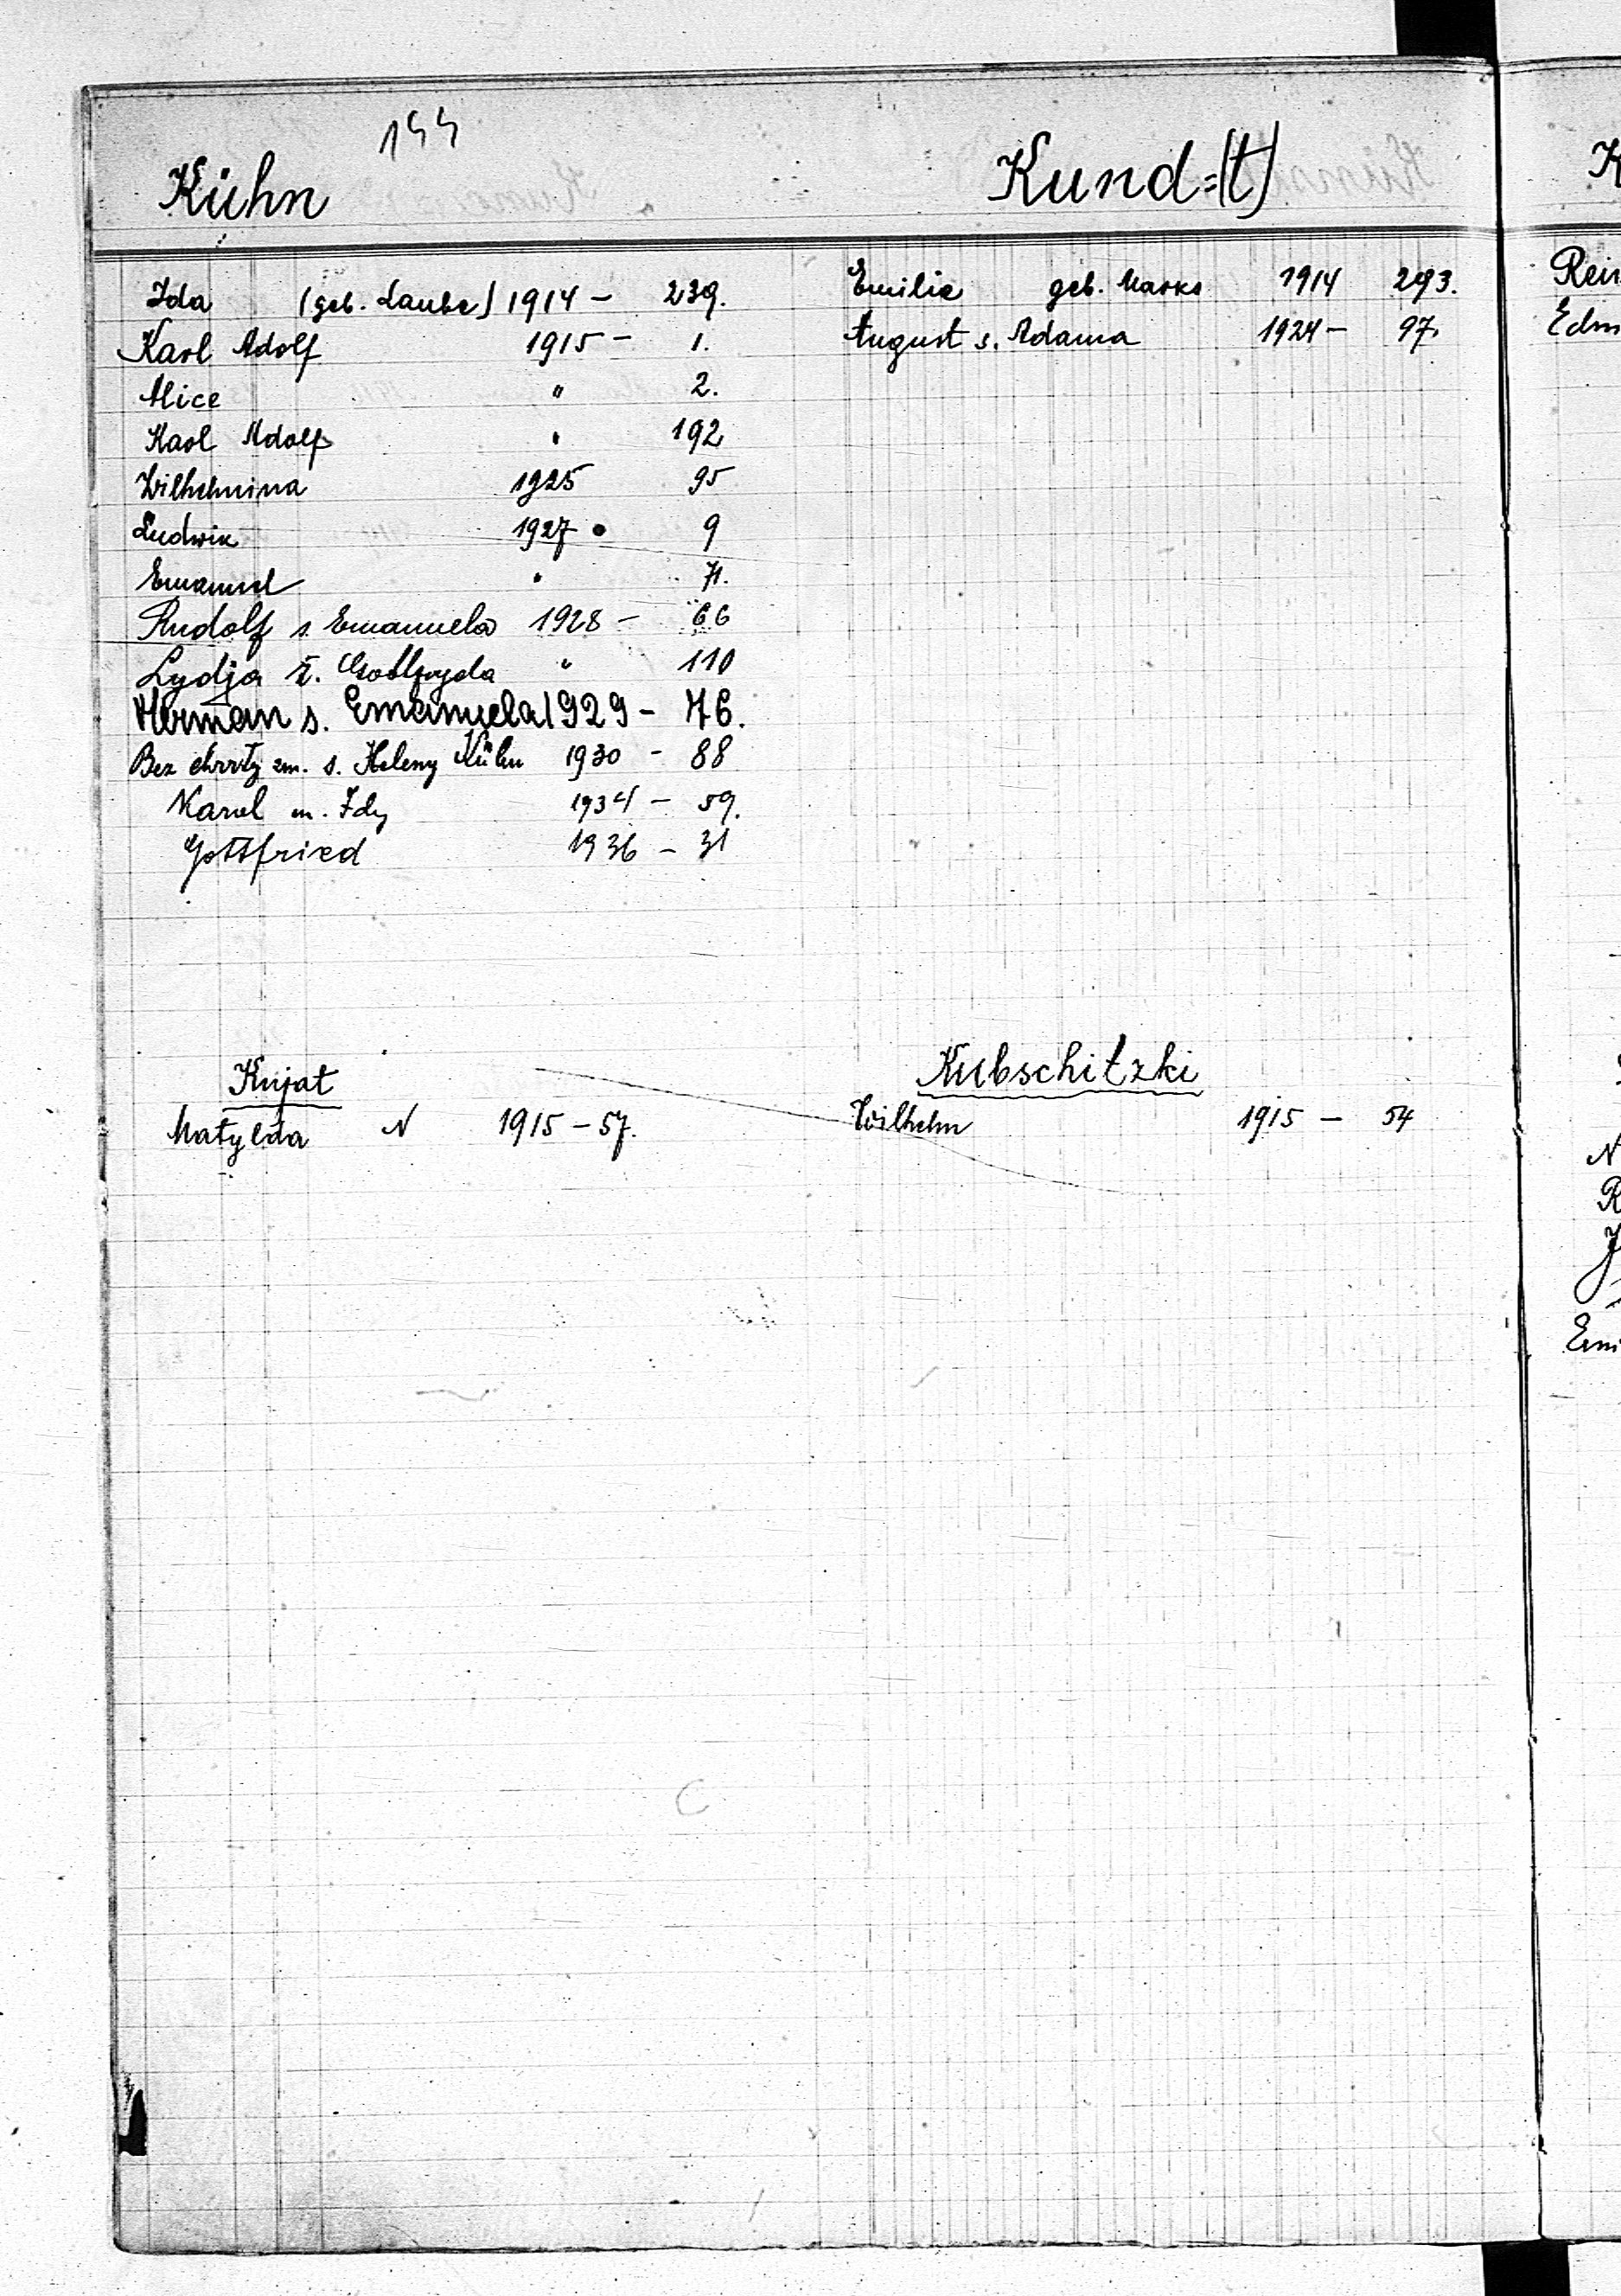 144
Kühn
Ida (geb. Laube) 1914 - 239.
Karl Adolf 1915 - 1.
Alice " 2.
Karl Adolf " 192
Wilhelmina 1925 95
Ludwik 1927 9
Emanuel " 71.
Rudolf s. Emanuela 1928 - 66
Lydja ż. Gottfryda " 110
Herman s. Emanuela 1929 - 76.
Bez chrztu zm. s. Heleny Kühn 1930 - 88
Karol m. Idy 1934 - 59.
Gottfried 1936 - 31
Kujat
Matylda N 1915 - 57.
Kund=(t)
Emilie geb. Marks 1914 293.
August s. Adama 1924 - 97.
Kubschitzki
Wilhelm 1915 - 54
K
Rein
Edm
N
R
J
Emi